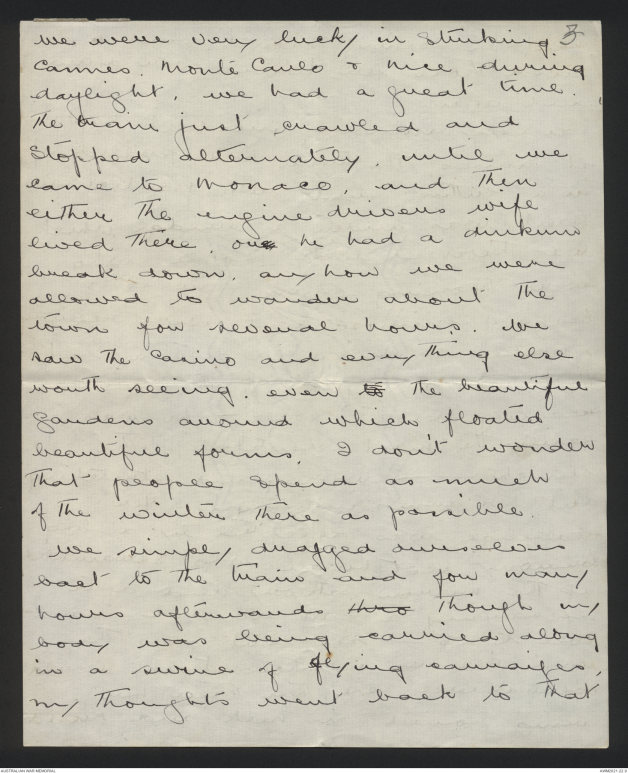 3
we were very lucky in striking
Cannes. Monte Carlo & Nice during
daylight, we had a great time.
The train just crawled and
Stopped alternately, until we
came to Monaco, and then
either the engine drivers wife
lived there, or he had a dinkum
break down, anyhow we were
allowed to wander about the
town for several hours. We
saw the Casino and everything else
worth seeing. even to the beautiful
Gardens around which floated
beautiful forms. I don't wonder
that people spend as much
of the winter there as possible.
we simply dragged ourselves
back to the train and for many
hours afterwards thro though my
body was being carried along
in a swine of flying carraiges,
my thoughts went back to that
AUSTRALIAN WAR MEMORIAL